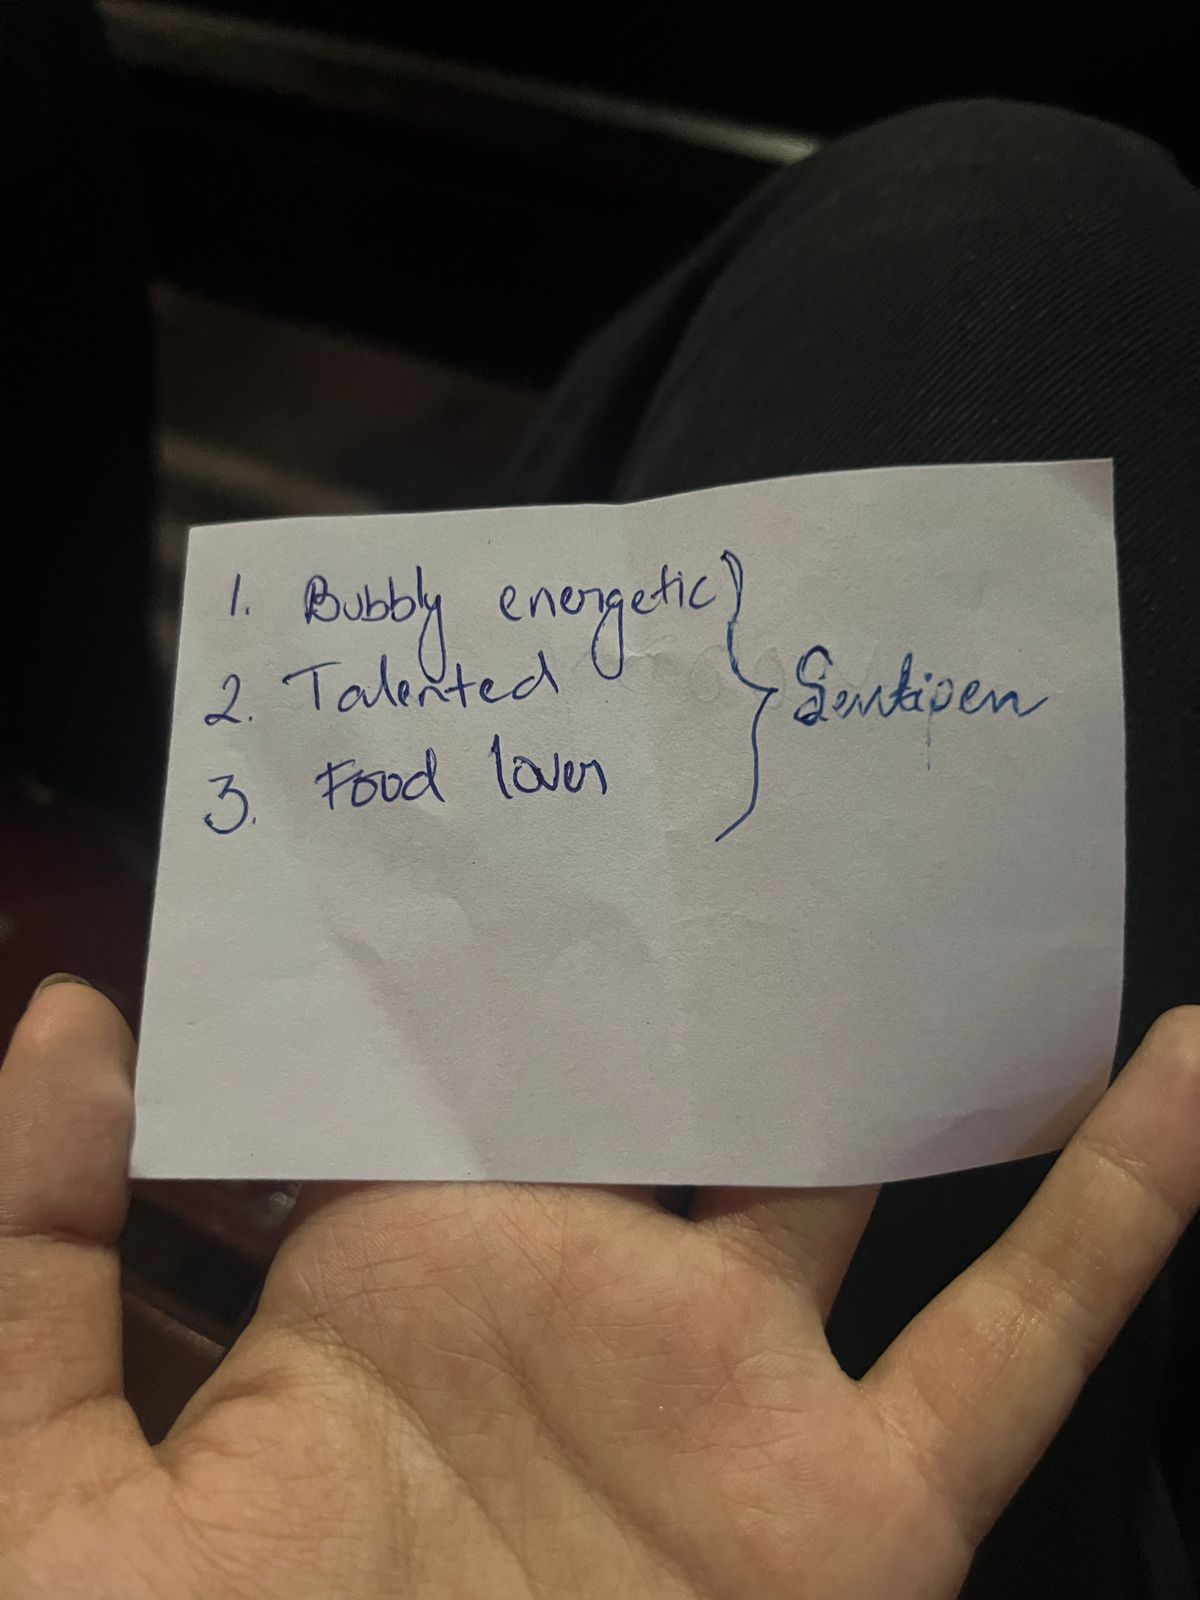 1. Bubbly energetic
2. Talented
3. Food lover
} Sentipen